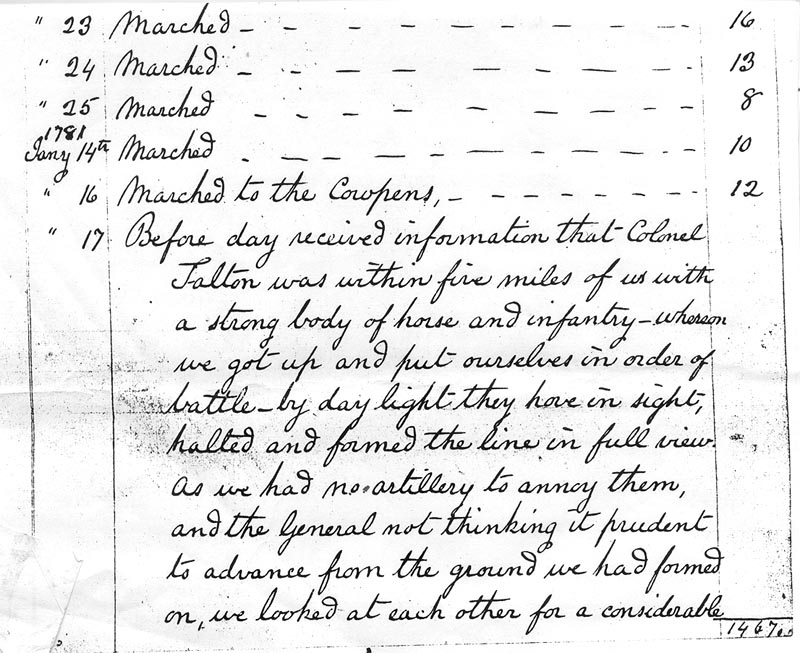 " 23 Marched - - - - - - - - - 16
" 24 Marched - - - - - - - - - 13
" 25 Marched - - - - - - - - - 8
1781
Jany 14th Marched - - - - - - - - - 10
" 16 Marched to the Cowpens, - - - - - - - 12
" 17 Before day received information that Colonel
Talton was within five miles of us with
a strong body of horse and infantry - whereon
we got up and put ourselves in order of
battle - by day light they hove in sight,
halted and formed the line in full view.
As we had no artillery to annoy them,
and the General not thinking it prudent
to advance from the ground we had formed
on, we looked at each other for a considerable
1467